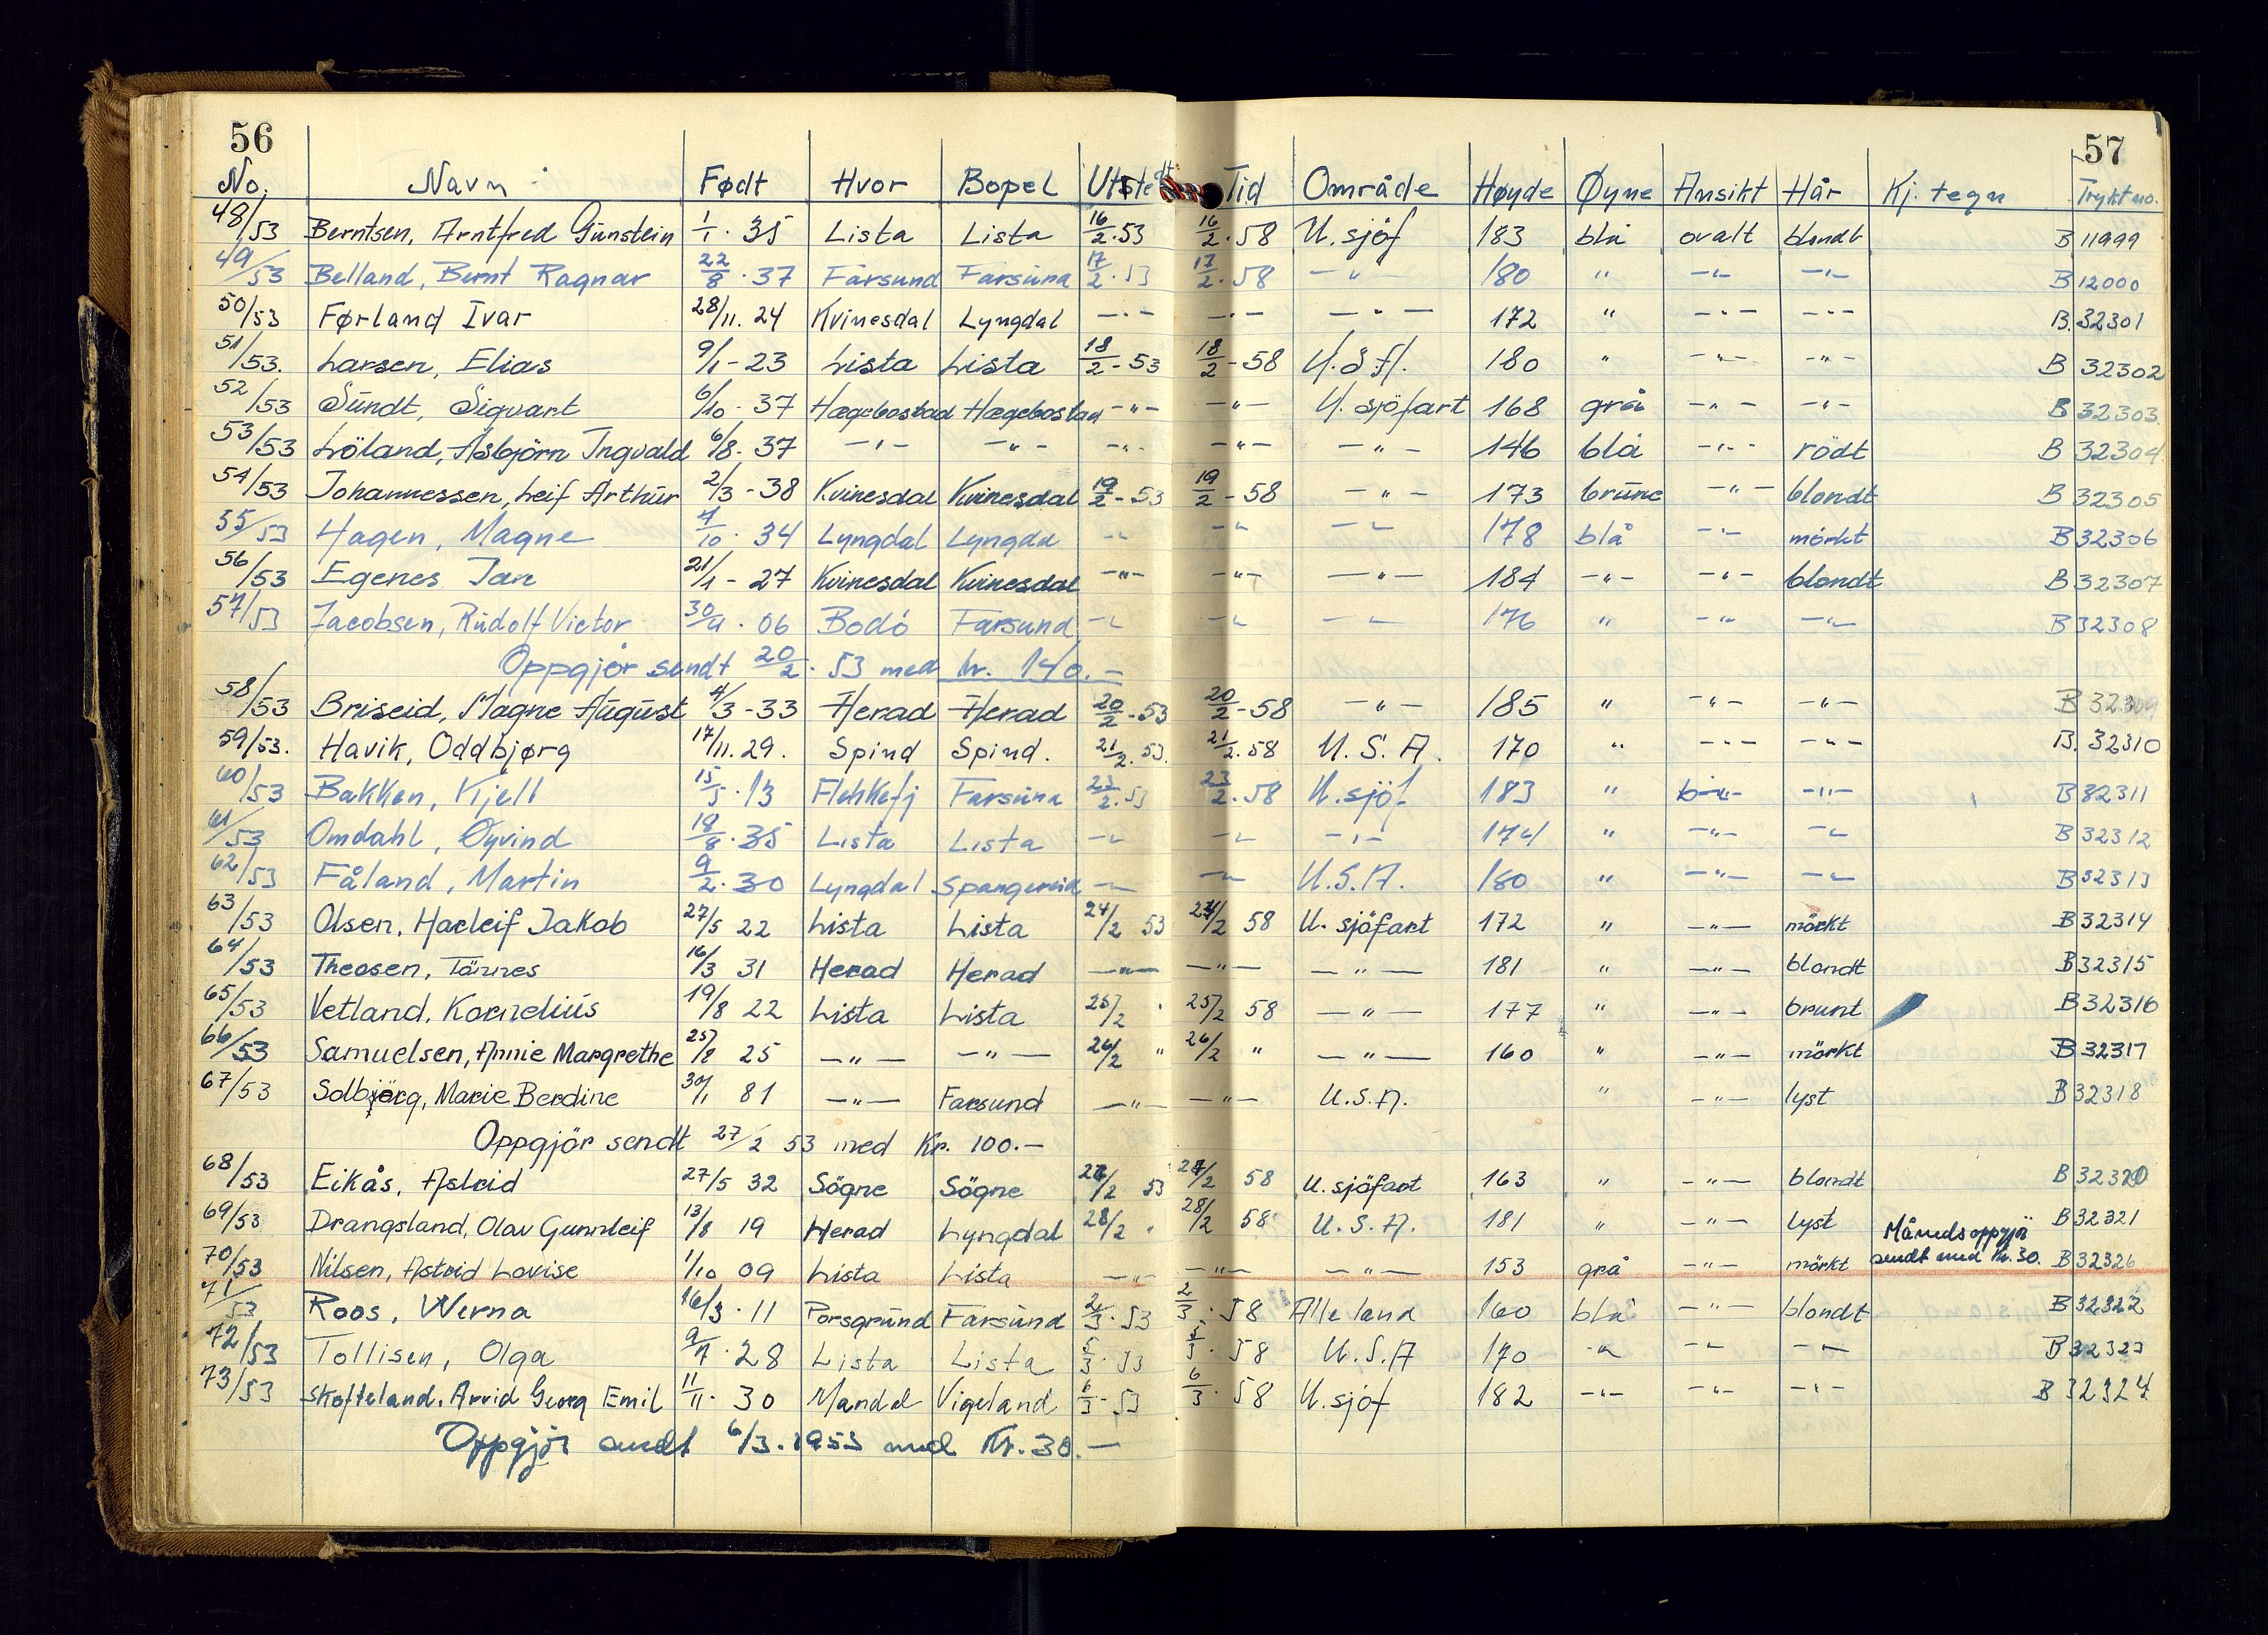 56
57
No. Navn Født Hvor Bopel Utstedt Tid Område Høyde Øyne Ansikt Hår Kj. tegn Trykt no.
48/53 Berntsen, Arntfred Gunstein 1/1 · 35 Lista Lista 16/2 · 53 16/2 · 58 U. sjöf 183 blå ovalt blondt B 11999
49/53 Belland, Bernt Ragnar 22/8 · 37 Farsund Farsund 17/2 · 53 17/2 · 58 —"— 180 " —"— —"— B 12000
50/53 Førland Ivar 28/11. 24 Kvinesdal Lyngdal —"— —"— —"— 172 " —"— —"— B. 32301
51/53. Larsen, Elias 9/1 - 23 Lista Lista 18/2 - 53 18/2 - 58 U.S.A. 180 " —"— —"— B 32302
52/53 Sundt, Sigvart 6/10 - 37 Hægebostad Hægebostad —"— —"— U. sjöfart 168 grå —"— —"— B 32303
53/53 Löland, Asbjörn Ingvald 6/8 - 37 —"— —"— —"— —"— —"— 146 blå —"— rödt B 32304
54/53 Johannessen, Leif Arthur 2/3 - 38 Kvinesdal Kvinesdal 19/2 - 53 19/2 - 58 —"— 173 brune —"— blondt B 32305
55/53 Hagen, Magne 7/10 · 34 Lyngdal Lyngda —"— —"— —"— 178 blå —"— mörkt B 32306
56/53 Egenes Jan 21/1 - 27 Kvinesdal Kvinesdal —"— —"— —"— 184 —"— —"— blondt B 32307
57/53 Jacobsen, Rudolf Victor 30/ · 06 Bodö Farsund —"— —"— —"— 176 " —"— —"— B 32308
Oppgjör sendt 20/2 · 53 med kr. 140.—
58/53 Briseid, Magne August 4/3 - 33 Herad Herad 20/2 - 53 20/2 - 58 —"— 185 " —"— —"— B 32309
59/53. Havik, Oddbjørg 17/11. 29. Spind Spind. 21/2. 53. 21/2. 58 U. S. A. 170 " —"— —"— B. 32310
60/53 Bakken, Kjell 15/5 · 13 Flekkefj Farsund 23/2 · 53 23/2 · 58 U. sjöf 183 " —"— —"— B 32311
61/53 Omdahl, Øyvind 18/8 · 35 Lista Lista —"— —"— —"— 174 " —"— —"— B 32312
62/53 Fåland, Martin 9/2 · 30 Lyngdal Spangereid —"— —"— U.S.A. 180 " —"— —"— B 32313
63/53 Olsen, Harleif Jakob 27/5 22 Lista Lista 24/2 53 24/2 58 U. sjöfart 172 " —"— mörkt B 32314
64/53 Theosen, Tönnes 16/3 31 Herad Herad —"— —"— —"— 181 " —"— blondt B 32315
65/53 Vetland, Kornelius 19/8 22 Lista Lista 25/2 " 25/2 58 —"— 177 " —"— brunt B 32316
66/53 Samuelsen, Annie Margrethe 25/8 25 —"— —"— 26/2 " 26/2 " —"— 160 " —"— mörkt B 32317
67/53 Solbjörg, Marie Berdine 30/1 81 —"— Farsund —"— —"— U.S.A. " —"— lyst B 32318
Oppgjör sendt 27/2 53 med Kr. 100.—
68/53 Eikås, Astrid 27/5 32 Sögne Sögne 27/2 53 27/2 58 U. sjöfart 163 " —"— blondt B 32320
69/53 Drangsland, Olav Gunnleif 13/8 19 Herad Lyngdal 28/2 " 28/2 58 U. S. A. 181 " —"— lyst B 32321
Månedsoppgjö
70/53 Nilsen, Astrid Lovise 1/10 09 Lista Lista —"— —"— —"— 153 grå —"— mörkt sendt med kr. 30. B 32326
71/53 Roos, Werna 16/3 · 11 Porsgrund Farsund 2/3 · 53 2/3 · 58 Alle land 160 blå —"— blondt B 32322
72/53 Tollisen, Olga 9/7 · 28 Lista Lista 5/3 · 53 5/3 · 58 U.S.A 170 —"— —"— —"— B 32323
73/53 Skofteland, Arvid Georg Emil 11/11 · 30 Mandal Vigeland 6/3 - 53 6/3 · 58 U. sjöf 182 —"— —"— —"— B 32324
Oppgjör sendt 6/3. 1953 med Kr. 30.—